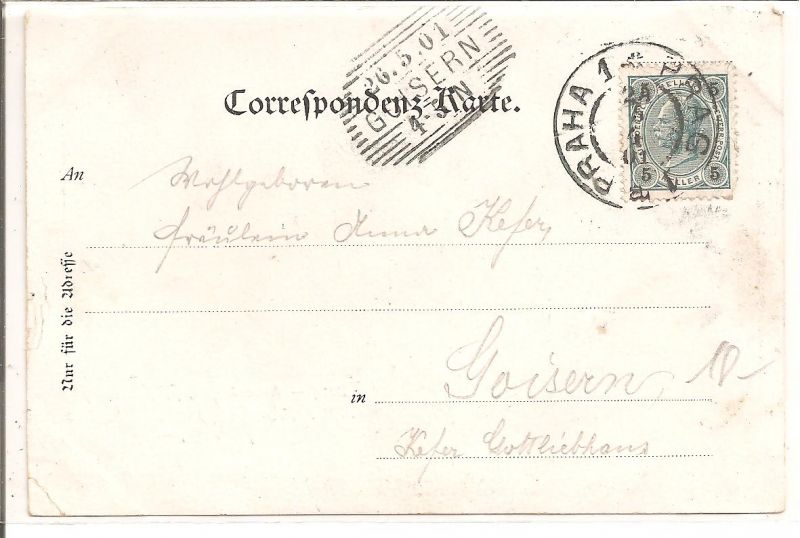 Correspondenz-Karte.
26.5.01
GOISERN
4-5N
PRAHA 1 * PRAG 1
5 HELLER 5
An
Wohlgeboren
Fräulein Anna Kefer,
Nur für die Adresse
in
Goisern
Kefer Gottliebhaus